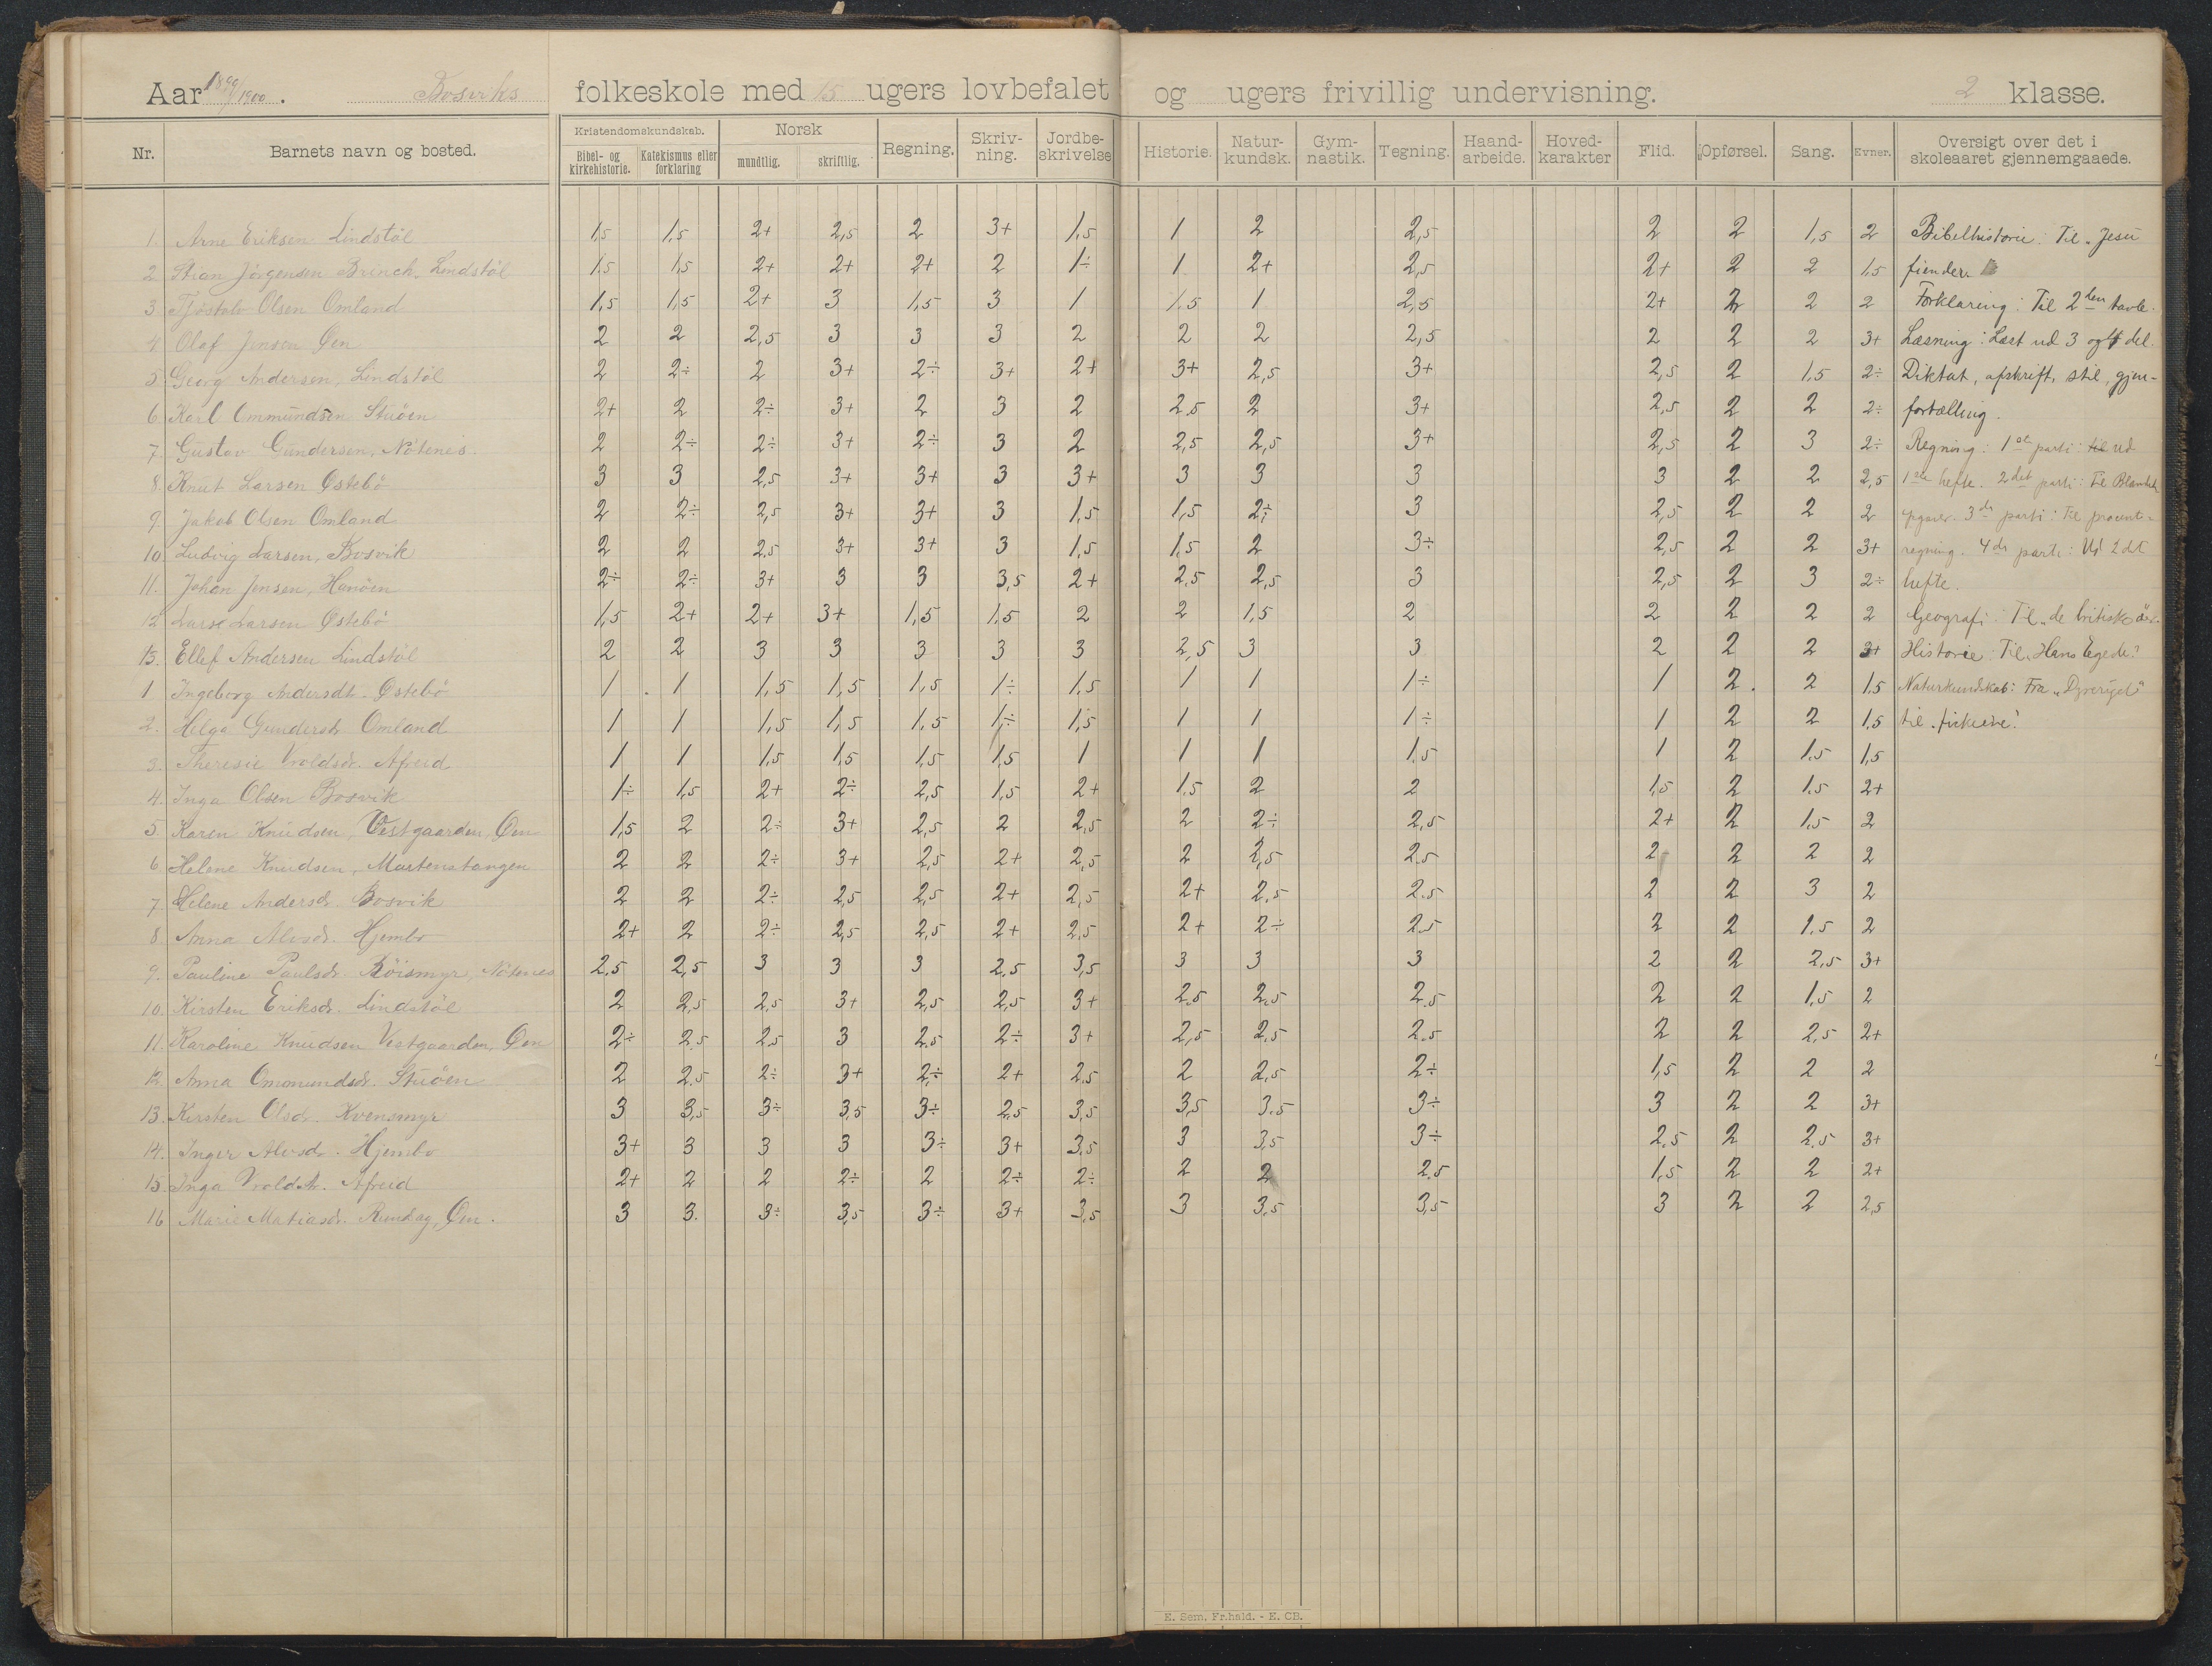 Aar 1899/1900. Bosviks folkeskole med 15 ugers lovbefalet og ugers frivillig undervisning. 2 klasse.
Nr. Barnets navn og bosted. Kristendomskundskab. Bibel- og kirkehistorie. Katekismus eller forklaring Norsk mundtlig. skriftlig. Regning. Skriv-ning. Jordbe-skrivelse Historie. Natur-kundsk. Gym-nastik. Tegning. Haand-arbeide. Hoved-karakter Flid. Opførsel. Sang. Evner. Oversigt over det i skoleaaret gjennemgaaede.
1. Arne Eriksen Lindstöl 1,5 1,5 2+ 2,5 2 3+ 1,5 1 2 2,5 2 2 1,5 2 Bibelhistorie: Til „Jesu
2. Stian Jörgensen Brinch, Lindstöl 1,5 1,5 2+ 2+ 2+ 2 1÷ 1 2+ 2,5 2+ 2 2 1,5 fiender
3. Tjöstolv Olsen Omland 1,5 1,5 2+ 3 1,5 3 1 1,5 1 2,5 2+ 2 2 2 Forklaring: Til 2den tavle.
4 Olaf Jensen Øen 2 2 2,5 3 3 3 2 2 2 2,5 2 2 2 3+ Læsning: Læst ud 3 og 4 del.
5 Georg Andersen, Lindstöl 2 2÷ 2 3+ 2÷ 3+ 2+ 3+ 2,5 3+ 2,5 2 1,5 2÷ Diktat, afskrift, stil, gjen-
6. Karl Ommundsen Stuöen 2+ 2 2÷ 3+ 2 3 2 2,5 2 3+ 2,5 2 2 2÷ fortælling.
7. Gustav Gundersen, Nötenes. 2 2÷ 2÷ 3+ 2÷ 3 2 2,5 2,5 3+ 2,5 2 3 2÷ Regning: 1ste parti: til ud
8. Knut Larsen Östebö 3 3 2,5 3+ 3+ 3 3+ 3 3 3 3 2 2 2,5 1ste hefte. 2det parti: Til
9 Jakob Olsen Omland 2 2÷ 2,5 3+ 3+ 3 1,5 1,5 2÷ 3 2,5 2 2 2 3de parti: Til procent-
10. Ludvig Larsen, Bosvik 2 2 2,5 3+ 3+ 3 1,5 1,5 2 3÷ 2,5 2 2 3+ regning. 4de parti: Ud 2det
11. Johan Jensen, Hanöen 2÷ 2÷ 3+ 3 3 3,5 2+ 2,5 2,5 3 2,5 2 3 2÷ hefte.
12 Lars Larsen Östebö 1,5 2+ 2+ 3+ 1,5 1,5 2 2 1,5 2 2 2 2 2 Geografi: Til „de britiske
13. Ellef Andersen Lindstöl 2 2 3 3 3 3 3 2,5 3 3 2 2 2 3+ Historie: Til „Hans Egede."
1 Ingeborg Andersdt. Östebö 1 1 1,5 1,5 1,5 1÷ 1,5 1 1 1÷ 1 2. 2 1,5 Naturkundskab: Fra „Dyreriget"
2. Helga Gundersdt. Omland 1 1 1,5 1,5 1,5 1÷ 1,5 1 1 1÷ 1 2 2 1,5 til „fiskene".
3. Theresie Vroldsdt. Afreid 1 1 1,5 1,5 1,5 1,5 1 1 1 1,5 1 2 1,5 1,5
4. Inga Olsen Bosvik 1÷ 1,5 2+ 2÷ 2,5 1,5 2+ 1,5 2 2 1,5 2 1,5 2+
5. Karen Knudsen, Vestgaarden, Øen 1,5 2 2÷ 3+ 2,5 2 2,5 2 2÷ 2,5 2+ 2 1,5 2
6 Helene Knudsen, Martenstangen 2 2 2÷ 3+ 2,5 2+ 2,5 2 2,5 2,5 2 2 2 2
7 Helene Andersdt. Bosvik 2 2 2÷ 2,5 2,5 2+ 2,5 2+ 2,5 2,5 2 2 3 2
8 Anna Alvsdt. Hjembo 2+ 2 2÷ 2,5 2,5 2+ 2,5 2+ 2÷ 2,5 2 2 1,5 2
9. Pauline Paulsdt. Röismyr, Nötenes 2,5 2,5 3 3 3 2,5 3,5 3 3 3 2 2 2,5 3+
10. Kirsten Eriksdt. Lindstöl 2 2,5 2,5 3+ 2,5 2,5 3+ 2,5 2,5 2,5 2 2 1,5 2
11. Karoline Knudsen Vestgaarden, Øen 2÷ 2,5 2,5 3 2,5 2÷ 3+ 2,5 2,5 2,5 2 2 2,5 2+
12. Anna Ommundsdt. Stuöen 2 2,5 2÷ 3+ 2÷ 2+ 2,5 2 2,5 2÷ 1,5 2 2 2
13. Kirsten Olsdt. Kvensmyr 3 3,5 3÷ 3,5 3÷ 2,5 3,5 3,5 3,5 3÷ 3 2 2 3+
14. Inger Alvsdt. Hjembo 3+ 3 3 3 3÷ 3+ 3,5 3 3,5 3÷ 2,5 2 2,5 3+
15. Inga Vroldsdt. Afreid 2+ 2 2 2÷ 2 2÷ 2÷ 2 2 2,5 1,5 2 2 2+
16 Marie Matiasdt. Øen. 3 3. 3÷ 3,5 3÷ 3+ 3,5 3 3,5 3,5 3 2 2 2,5
E. Sem, Fr.hald. - E. CB.